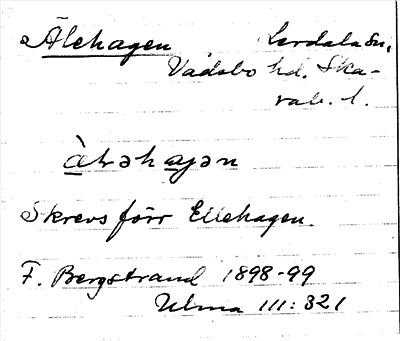 Älehagen Lerdala sn,
Vadsbo hd. Ska-
rab. l.
àləhagən
Skrevs förr Ellehagen.
F. Bergstrand 1898-99
Ulma 111:321